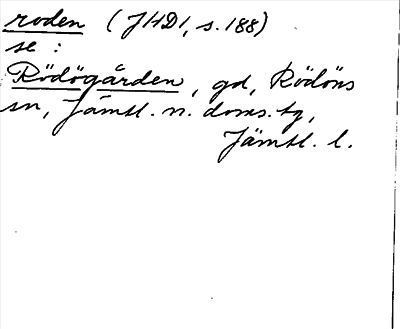 roden (JHD1, s. 188)
se:
Rödögården, gd, Rödöns
sn, Jämtl. n. doms. tg,
Jämtl. l.